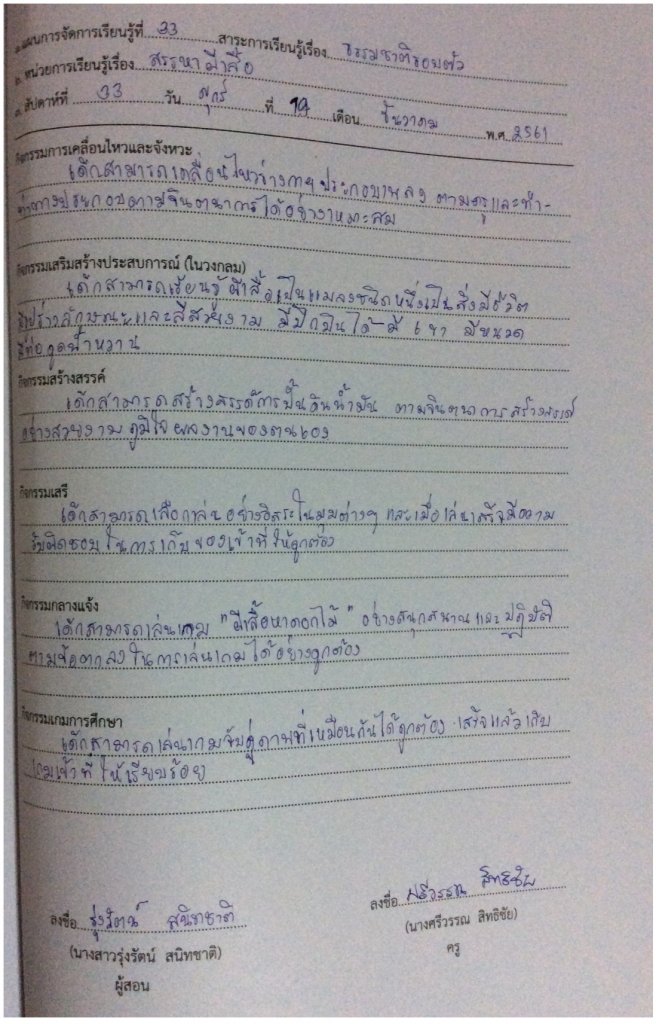 ๑. แผนการจัดการเรียนรู้ที่ 33 สาระการเรียนรู้เรื่อง ธรรมชาติรอบตัว
๒. หน่วยการเรียนรู้เรื่อง สรรหาผีเสื้อ
๓. สัปดาห์ที่ 33 วัน ศุกร์ ที่ 14 เดือน ธันวาคม พ.ศ. 2561
กิจกรรมการเคลื่อนไหวและจังหวะ
เด็กสามารถเคลื่อนไหวร่างกายประกอบเพลง ตามครูและทำ-
ท่าทางประกอบตามจินตนาการได้อย่างเหมาะสม
กิจกรรมเสริมสร้างประสบการณ์ (ในวงกลม)
เด็กสามารถเรียนรู้ผีเสื้อเป็นแมลงชนิดหนึ่งเป็นสิ่งมีชีวิต
มีรูปร่างลักษณะและสีสวยงาม มีปีกบินได้ มี 6 ขา มีหนวด
มีท่อดูดน้ำหวาน
กิจกรรมสร้างสรรค์
เด็กสามารถสร้างสรรค์การปั้นดินน้ำมัน ตามจินตนาการสร้างสรรค์
อย่างสวยงาม ภูมิใจผลงานของตนเอง
กิจกรรมเสรี
เด็กสามารถเลือกเล่นอย่างอิสระในมุมต่างๆ และเมื่อเล่นเสร็จมีความ
รับผิดชอบในการเก็บของเข้าที่ให้ถูกต้อง
กิจกรรมกลางแจ้ง
เด็กสามารถเล่นเกม "ผีเสื้อหาดอกไม้" อย่างสนุกสนานและปฏิบัติ
ตามข้อตกลงในการเล่นเกมได้อย่างถูกต้อง
กิจกรรมเกมการศึกษา
เด็กสามารถเล่นเกมจับคู่ภาพที่เหมือนกันได้ถูกต้อง เสร็จแล้วเก็บ
เกมเข้าที่ให้เรียบร้อย
ลงชื่อ รุ่งรัตน์ สนิทชาติ
(นางสาวรุ่งรัตน์ สนิทชาติ)
ผู้สอน
ลงชื่อ ศรีวรรณ สิทธิชัย
(นางศรีวรรณ สิทธิชัย)
ครู